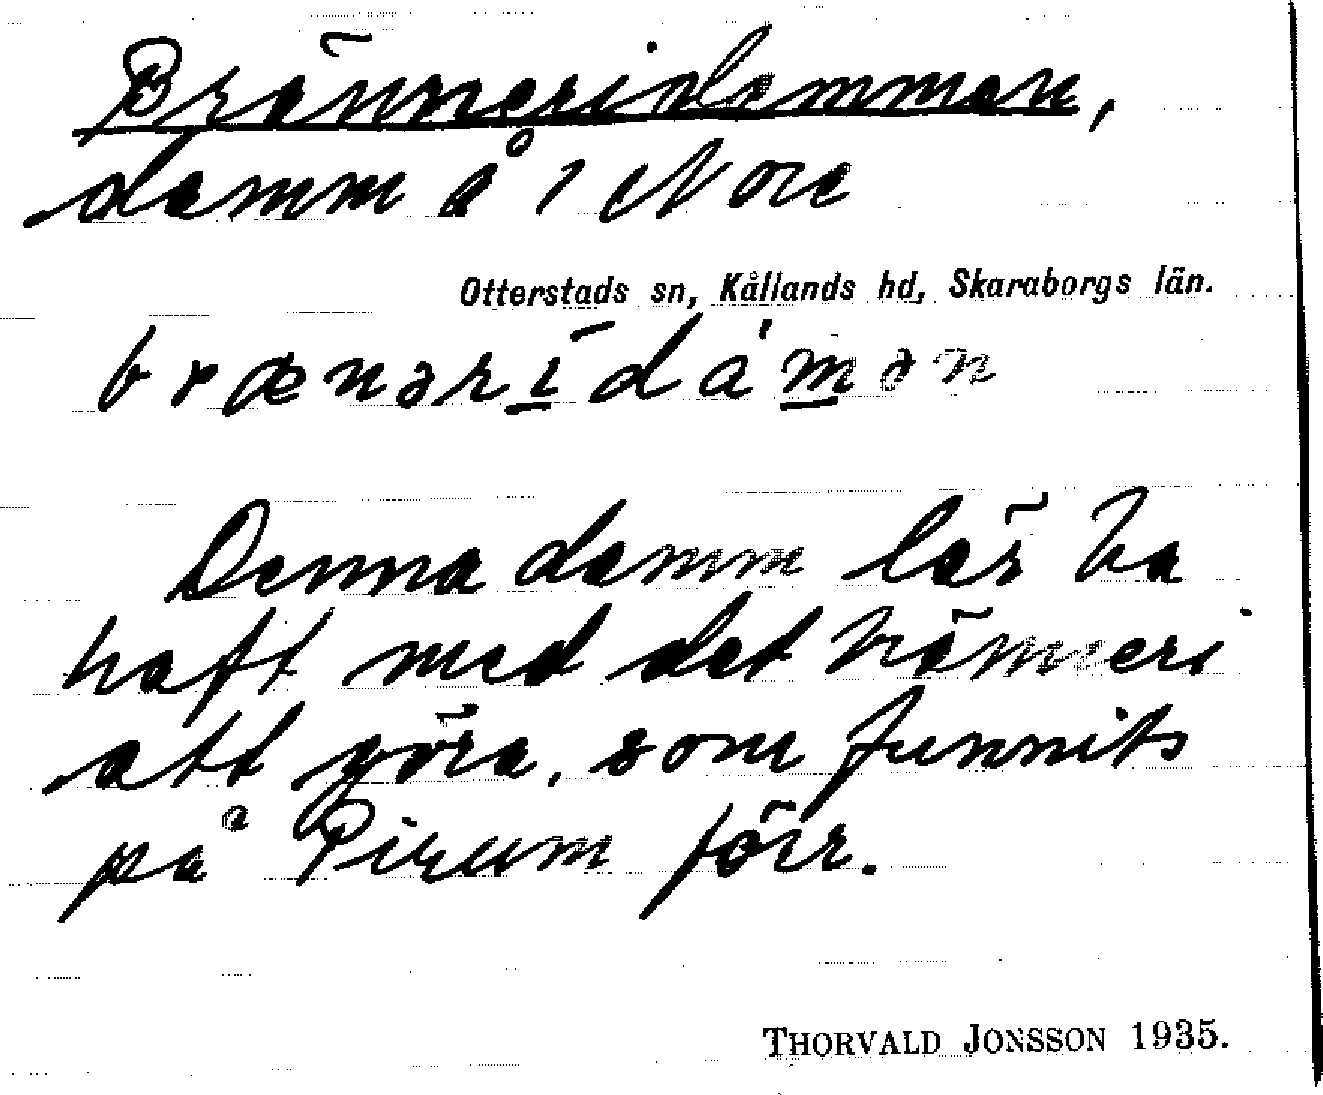 Bränneridammen,
damm å 1 Nore
Otterstads sn, Kållands hd, Skaraborgs län.
brænərī̱dám̱ən
Denna damm lär ha
haft med det bränneri
att göra, som funnits
på Pirum förr.
THORVALD JONSSON 1935.